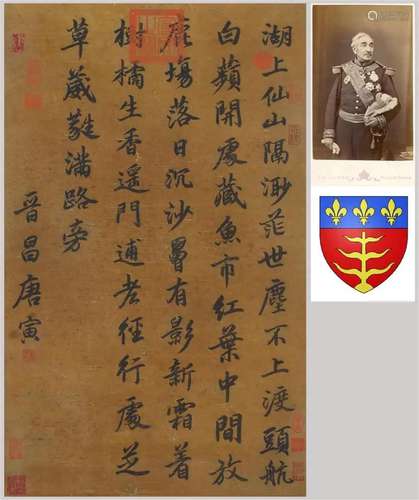 湖上仙山隔渺茫世塵不上渡頭航
白蘋開處藏魚市紅葉中間放
鹿塲落日沉沙罾有影新霜着
樹橘生香遥門逋老徑行處芝
草葳蕤滿路旁
晉昌唐寅